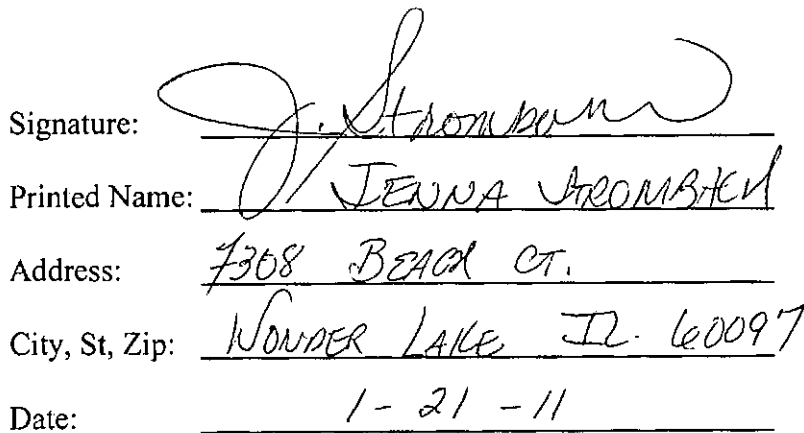 Signature: J. Strombach
Printed Name: JENNA STROMBACH
Address: 7308 BEACH CT.
City, St, Zip: WONDER LAKE IL. 60097
Date: 1-21-11